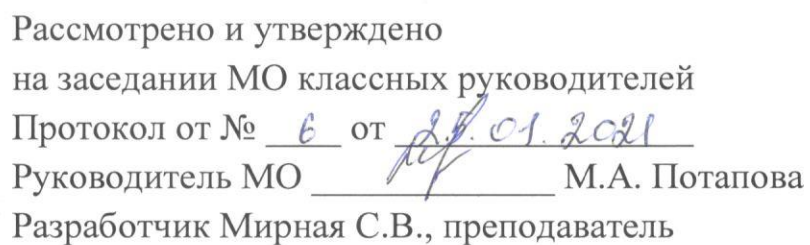 Рассмотрено и утверждено
на заседании МО классных руководителей
Протокол от № 6 от 01.2021
Руководитель МО М.А. Потапова
Разработчик Мирная С.В., преподаватель